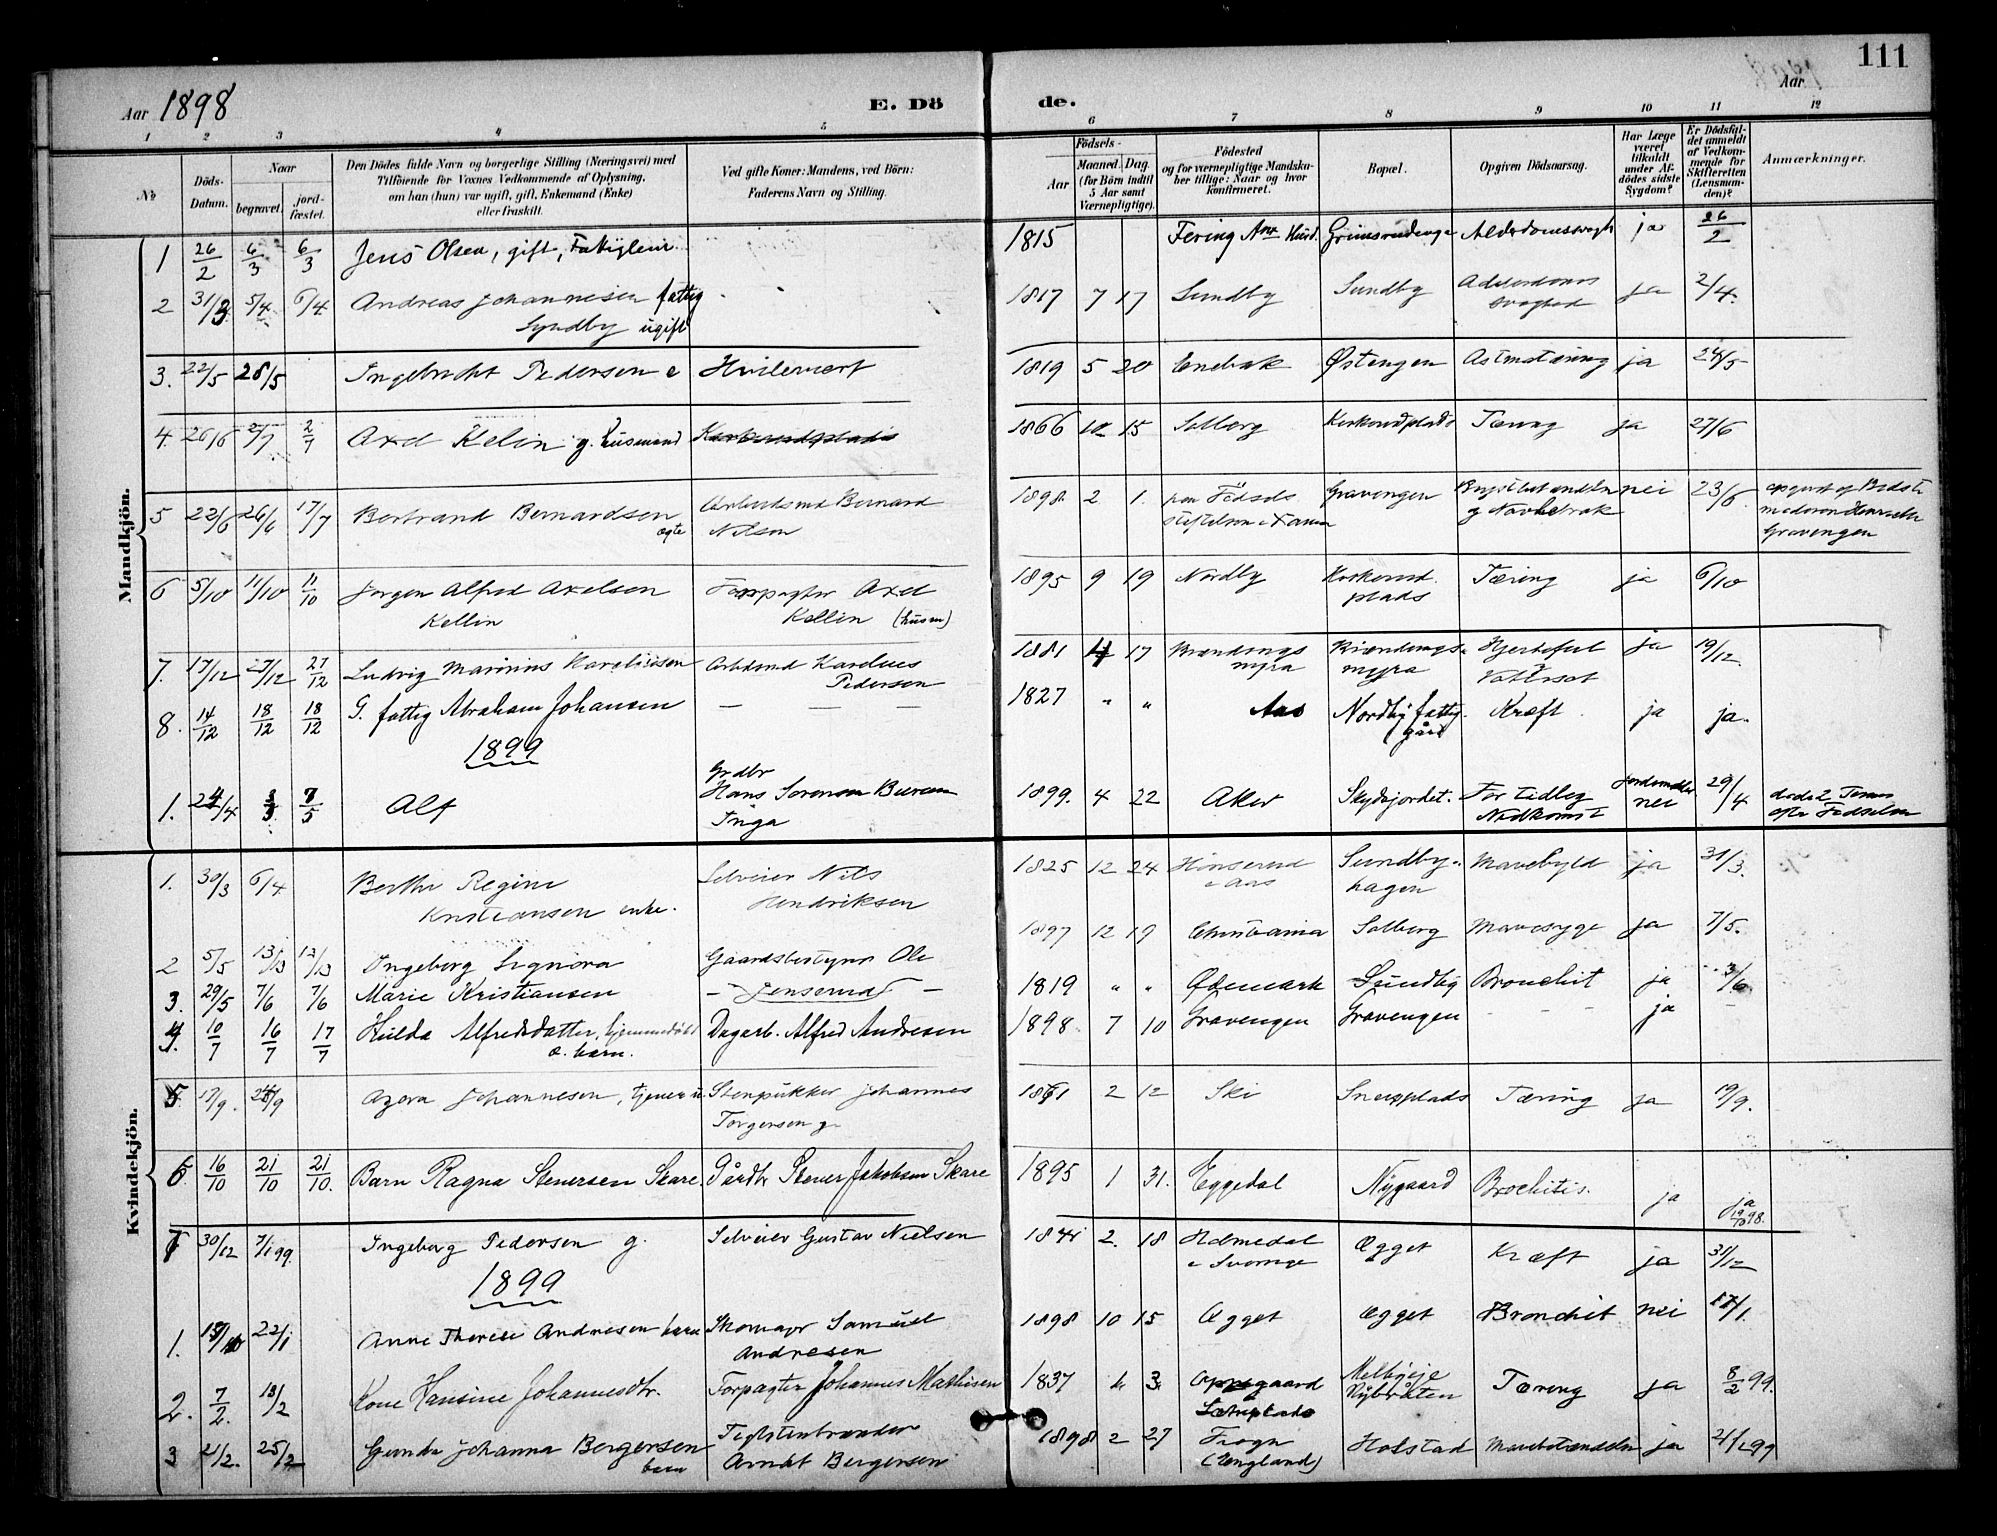 Aar 1898 E. Dö
de. Aar 111
1 2 3 4 5 6 7 8 9 10 11 12
No
Döds-Datum.
Naar
begravet.
jord-fæstet.
Den Dödes fulde Navn og borgerlige Stilling (Næringsvei) med
Tilföiende for Voxnes Vedkommende af Oplysning,
om han (hun) var ugift, gift, Enkemand (Enke)
eller fraskilt.
Ved gifte Koner: Mandens, ved Börn:
Faderens Navn og Stilling.
Födsels-
Aar
Maaned. Dag.
(for Börn indtil
5 Aar samt
Værnepligtige).
Födested
og for værnepligtige Mandska-
ber tillige: Naar og hvor
konfirmeret.
Bopæl.
Opgiven Dödsaarsag.
Har Læge
været
tilkaldt
under Af-
dödes sidste
Sygdom?
Er Dödsfal-
det anmeldt
af Vedkom-
mende for
Skifteretten
(Lensman-
den)?
Anmærkninger.
Mandkjön.
1 26/2 6/3 6/3 Jens Olsen, gift, 1815 ja 26/2
2 31/3 5/4 6/4 Andreas Johannesen fattig 1817 7 17 Sundby Sundby ja 2/4.
Syndby ugift
3. 22/5 28/5 Ingebricht Pedersen Hvilevært 1819 5 20 Enebak Østengen ja 24/5
4. 26/6 2/7 2/7 Axel Kelin g. husmand 1866 10 15 Solberg Tæring ja 27/6
5 22/6 26/6 17/7 Bertrand Bernardsen Bernard 1898 2 1. Gravengen nei 23/6
ægte Nilsen
Gravengen
6 5/10 11/10 11/10 Jørgen Alfred Axelsen Forpagter Axel 1895 9 19 Nordby Tæring ja 6/10
Kellin Kellin (husm) plads
7. 17/12 27/12 27/12 Ludvig Marinius Kareliussen Arbdsmd Karelius 1881 4 17 Brændings Brændings Hjertefeil ja 19/12
Pedersen myra myra Vattersot
8. 14/12 18/12 18/12 G. fattig Abraham Johansen — — — 1827 " " Aas Nordby fattig Kræft. ja ja.
gård
1899
1. 24/4 7/5 Alf Grdbr 1899. 4 22 Aker Skydsjordet. For tidlig jordemoder 29/4
Hans Sorensen Nedkomst nei efter Fødselen
Inga
Kvindekjön.
1. 30/3 6/4 Berthe Regine Selveier Nils 1825 12 24 Sundby- Mavebyld ja 31/3.
Kristiansen enke. Hendriksen hagen
2 5/5 13/13 12/13 Ingeborg Signora Gaardsbestyrer Ole 1897 12 19 Christiania Solberg Mavesyge ja 7/5.
3. 29/5 7/6 7/6 Marie Kristiansen – Jensen – 1819 " " Ødemark Sundby Bronchit ja 3/6
4. 10/7 16/7 17/7 Hulda Alfredsdatter, hjemmedøbt Dagarb. Alfred Andresen 1898 7 10 Gravengen Gravengen - - - ja -
æ. barn.
5. 17/9. 24/9 Azora Johannesen, tjener u. Stenpukker Johannes 1861 2 12 Ski Sneipplads Tæring ja 19/9.
Torgersen g.
6. 16/10 21/10 21/10. Barn Ragna Stenersen Skare. Gårdbr Stener Jakobsen Skare 1895 1 31. Eggedal Nygaard Brochitis. ja ja
98.
7 30/12 7/1 99. Ingeborg Pedersen g. Selveier Gustav Nielsen 2. 18 Holmedal Ægget Kræft ja 31/12
i Sverige
1899
1. 22/1 Anne Therese Andresen barn Skomager Samuel 1898 10 15 Ægget Ægget Bronchit nei 17/1.
Andresen
2. 7/2. 13/2 Kone Hansine Johannesdtr. Forpagter Johannes Mathisen 1837 3. Oppegaard Tæring ja 8/2 99.
Nybråten
3 21/2. 25/2 Gunda Johanna Bergersen Teglstenbrænder 1898 2 27 Frogn Holstad ja 21/2 99
barn Arndt Bergersen (England)